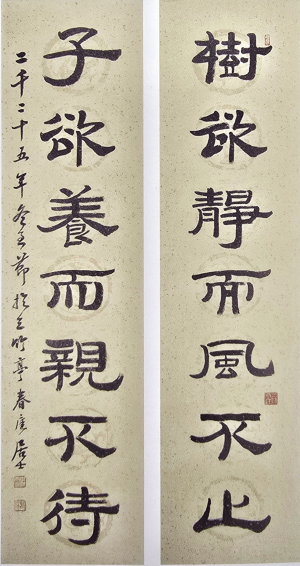 樹欲靜而風不止
子欲養而親不待
二千二十五年冬至節於立竹亭春唐居士